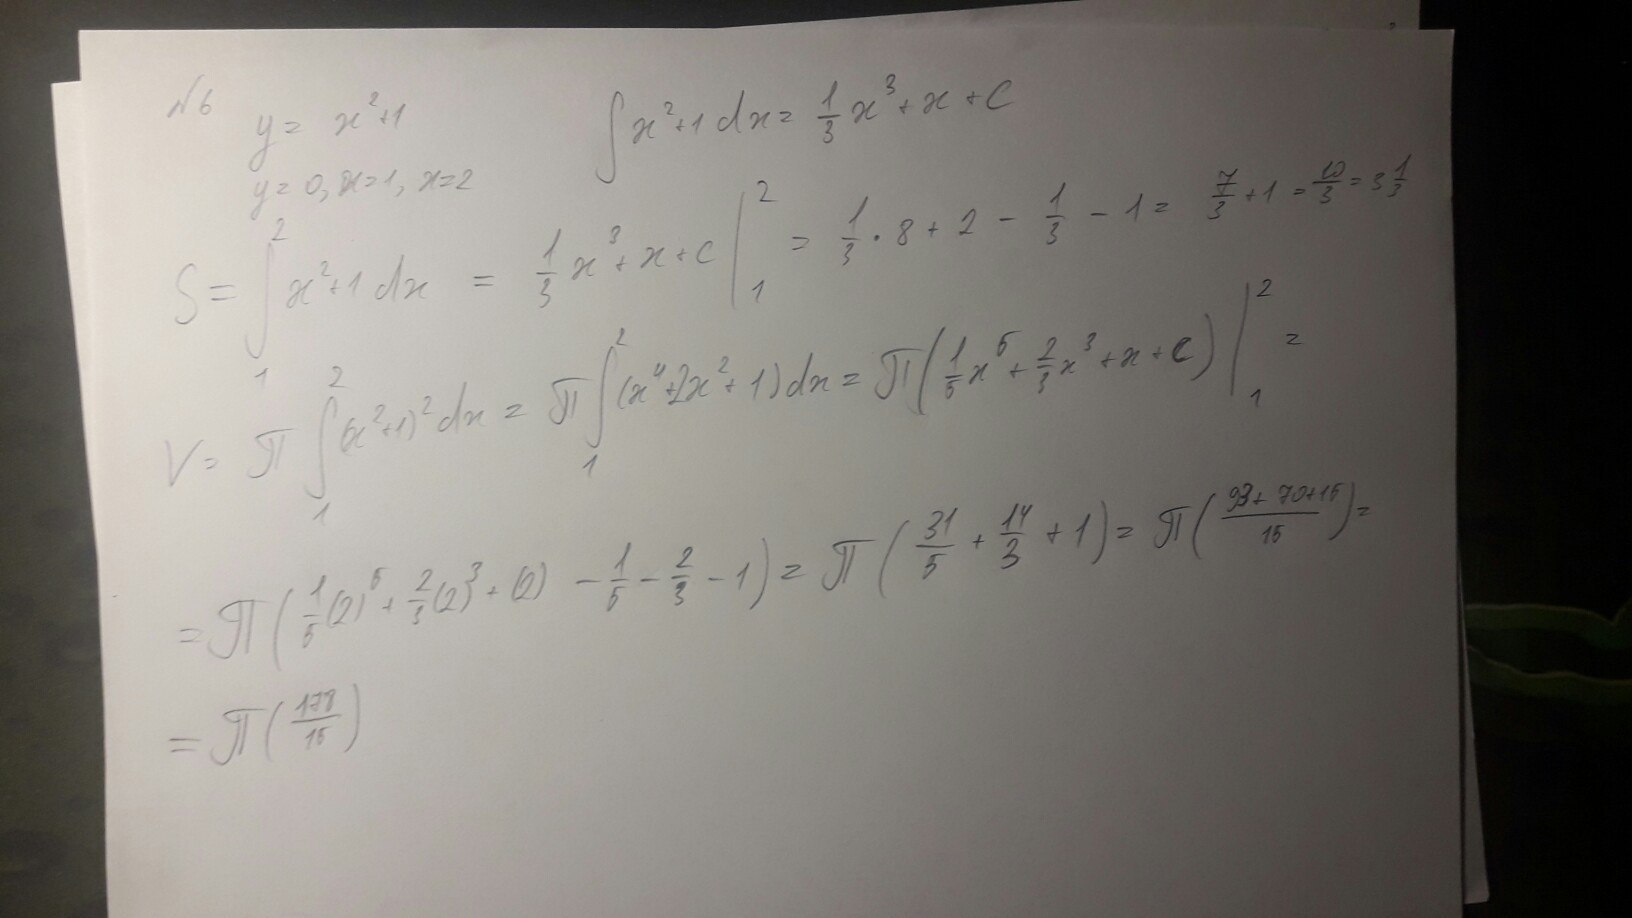 №6
y = x²+1
∫x²+1 dx = 1/3 x³ + x + C
y = 0, x=1, x=2
S = ∫₁² x²+1 dx = 1/3 x³ + x + C |₁² = 1/3 · 8 + 2 - 1/3 - 1 = 7/3 + 1 = 10/3 = 3 1/3
V = π ∫₁² (x²+1)² dx = π ∫₁² (x⁴+2x²+1) dx = π(1/5 x⁵ + 2/3 x³ + x + C) |₁² =
= π(1/5 (2)⁵ + 2/3 (2)³ + (2) - 1/5 - 2/3 - 1) = π(31/5 + 14/3 + 1) = π((93 + 70 + 15)/15) =
= π(178/15)